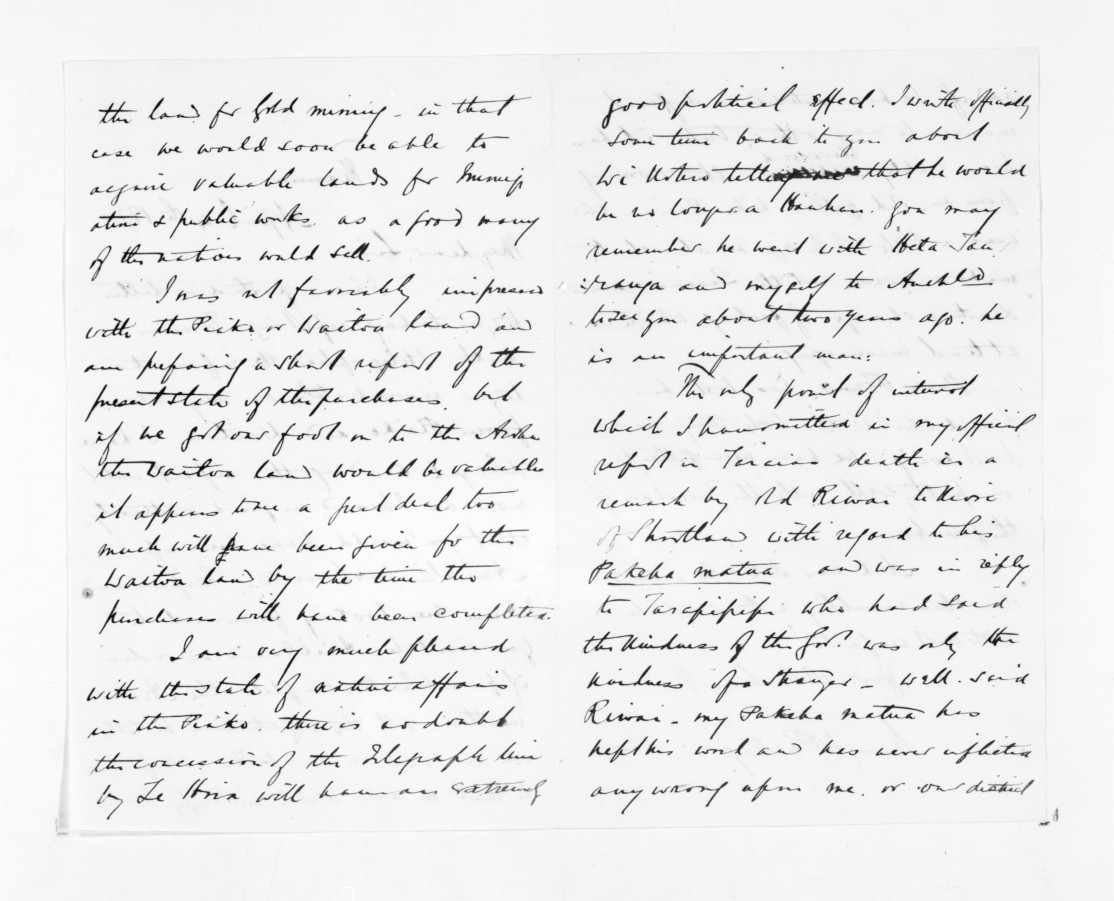 the land for Gold mining - in that
case we would soon be able to
acquire valuable lands for Immig
ation & public works. as a good many
of the natives would sell.
I was not favorably impressed
with the Piako or Waitoa land and
am preparing a short report of the
present state of the purchases. but
if we got our foot on to the Aroha
the Waitoa land would be valuable
it appears to me a great deal too
much will have been given for the
Waitoa land by the time the
purchases will have been completed.
I am very much pleased
with the state of native affairs
in the Piako. there is no doubt
the concession of the Telegraph line
by Te Hira will have an extremely
good political effect. I wrote officially
some time back to you about
Wi Kotero that he would
be no longer a Hauhau. you may
remember he went with Heta Tau
:ranga and myself to Auckld
to see you about two years ago. he
is an important man.
The only point of interest
which I transmitted in my official
report on Taraias death is a
remark by old Riwai te Kiore
of Shortland with regard to his
Pakeha matua and was in reply
to Tarapipipi who had said
the kindness of the Govt. was only the
kindness of a stranger - well. said
Riwai - my Pakeha matua has
kept his word and has never inflicted
any wrong upon me. or our district